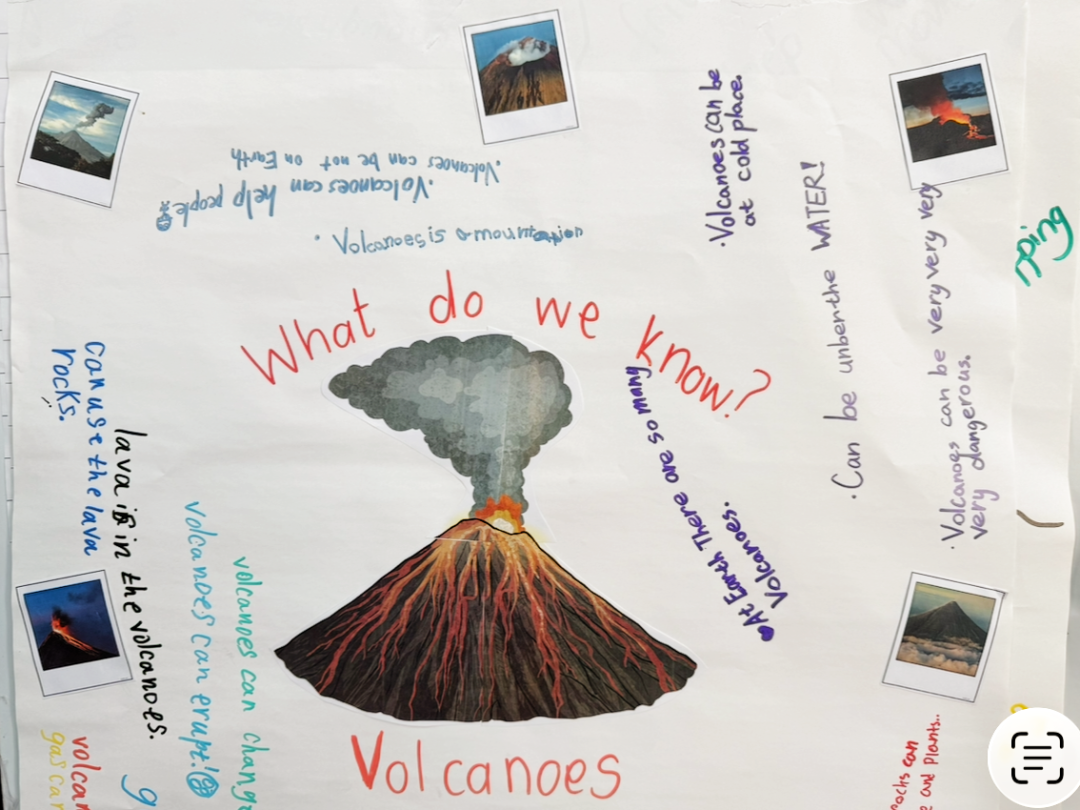 What do we know?
Volcanoes
.Volcanoes can be not on Earth
.Volcanoes can help people
. Volcanoes is a mountain
.Volcanoes can be
at cold place.
.Can be unber the WATER!
.Volcanoes can be very very very very
very dangerous.
At Earth There are so many
Volcanoes.
can use the lava
rocks.
lava is in the volcanoes.
volcanoes can erupt!
volcanoes can chang
volcan
gas can
g
oing
rocks can
e and plants..